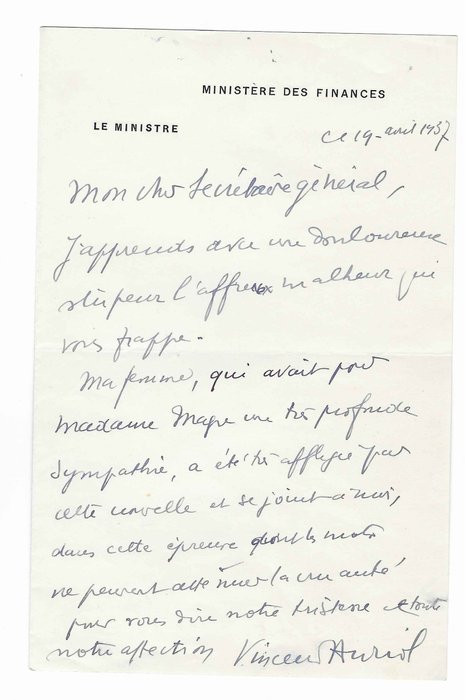 MINISTÈRE DES FINANCES
LE MINISTRE
Ce 19 - avril 1937
Mon cher Secrétaire général,
J'apprends avec une douloureuse
stupeur l'affreux malheur qui
vous frappe.
Ma femme, qui avait pour
Madame Magre une très profonde
sympathie, a été très affligée par
cette nouvelle et se joint à moi,
dans cette épreuve dont les mots
ne peuvent atténuer la cruauté
pour vous dire notre tristesse et toute
notre affection Vincent Auriol